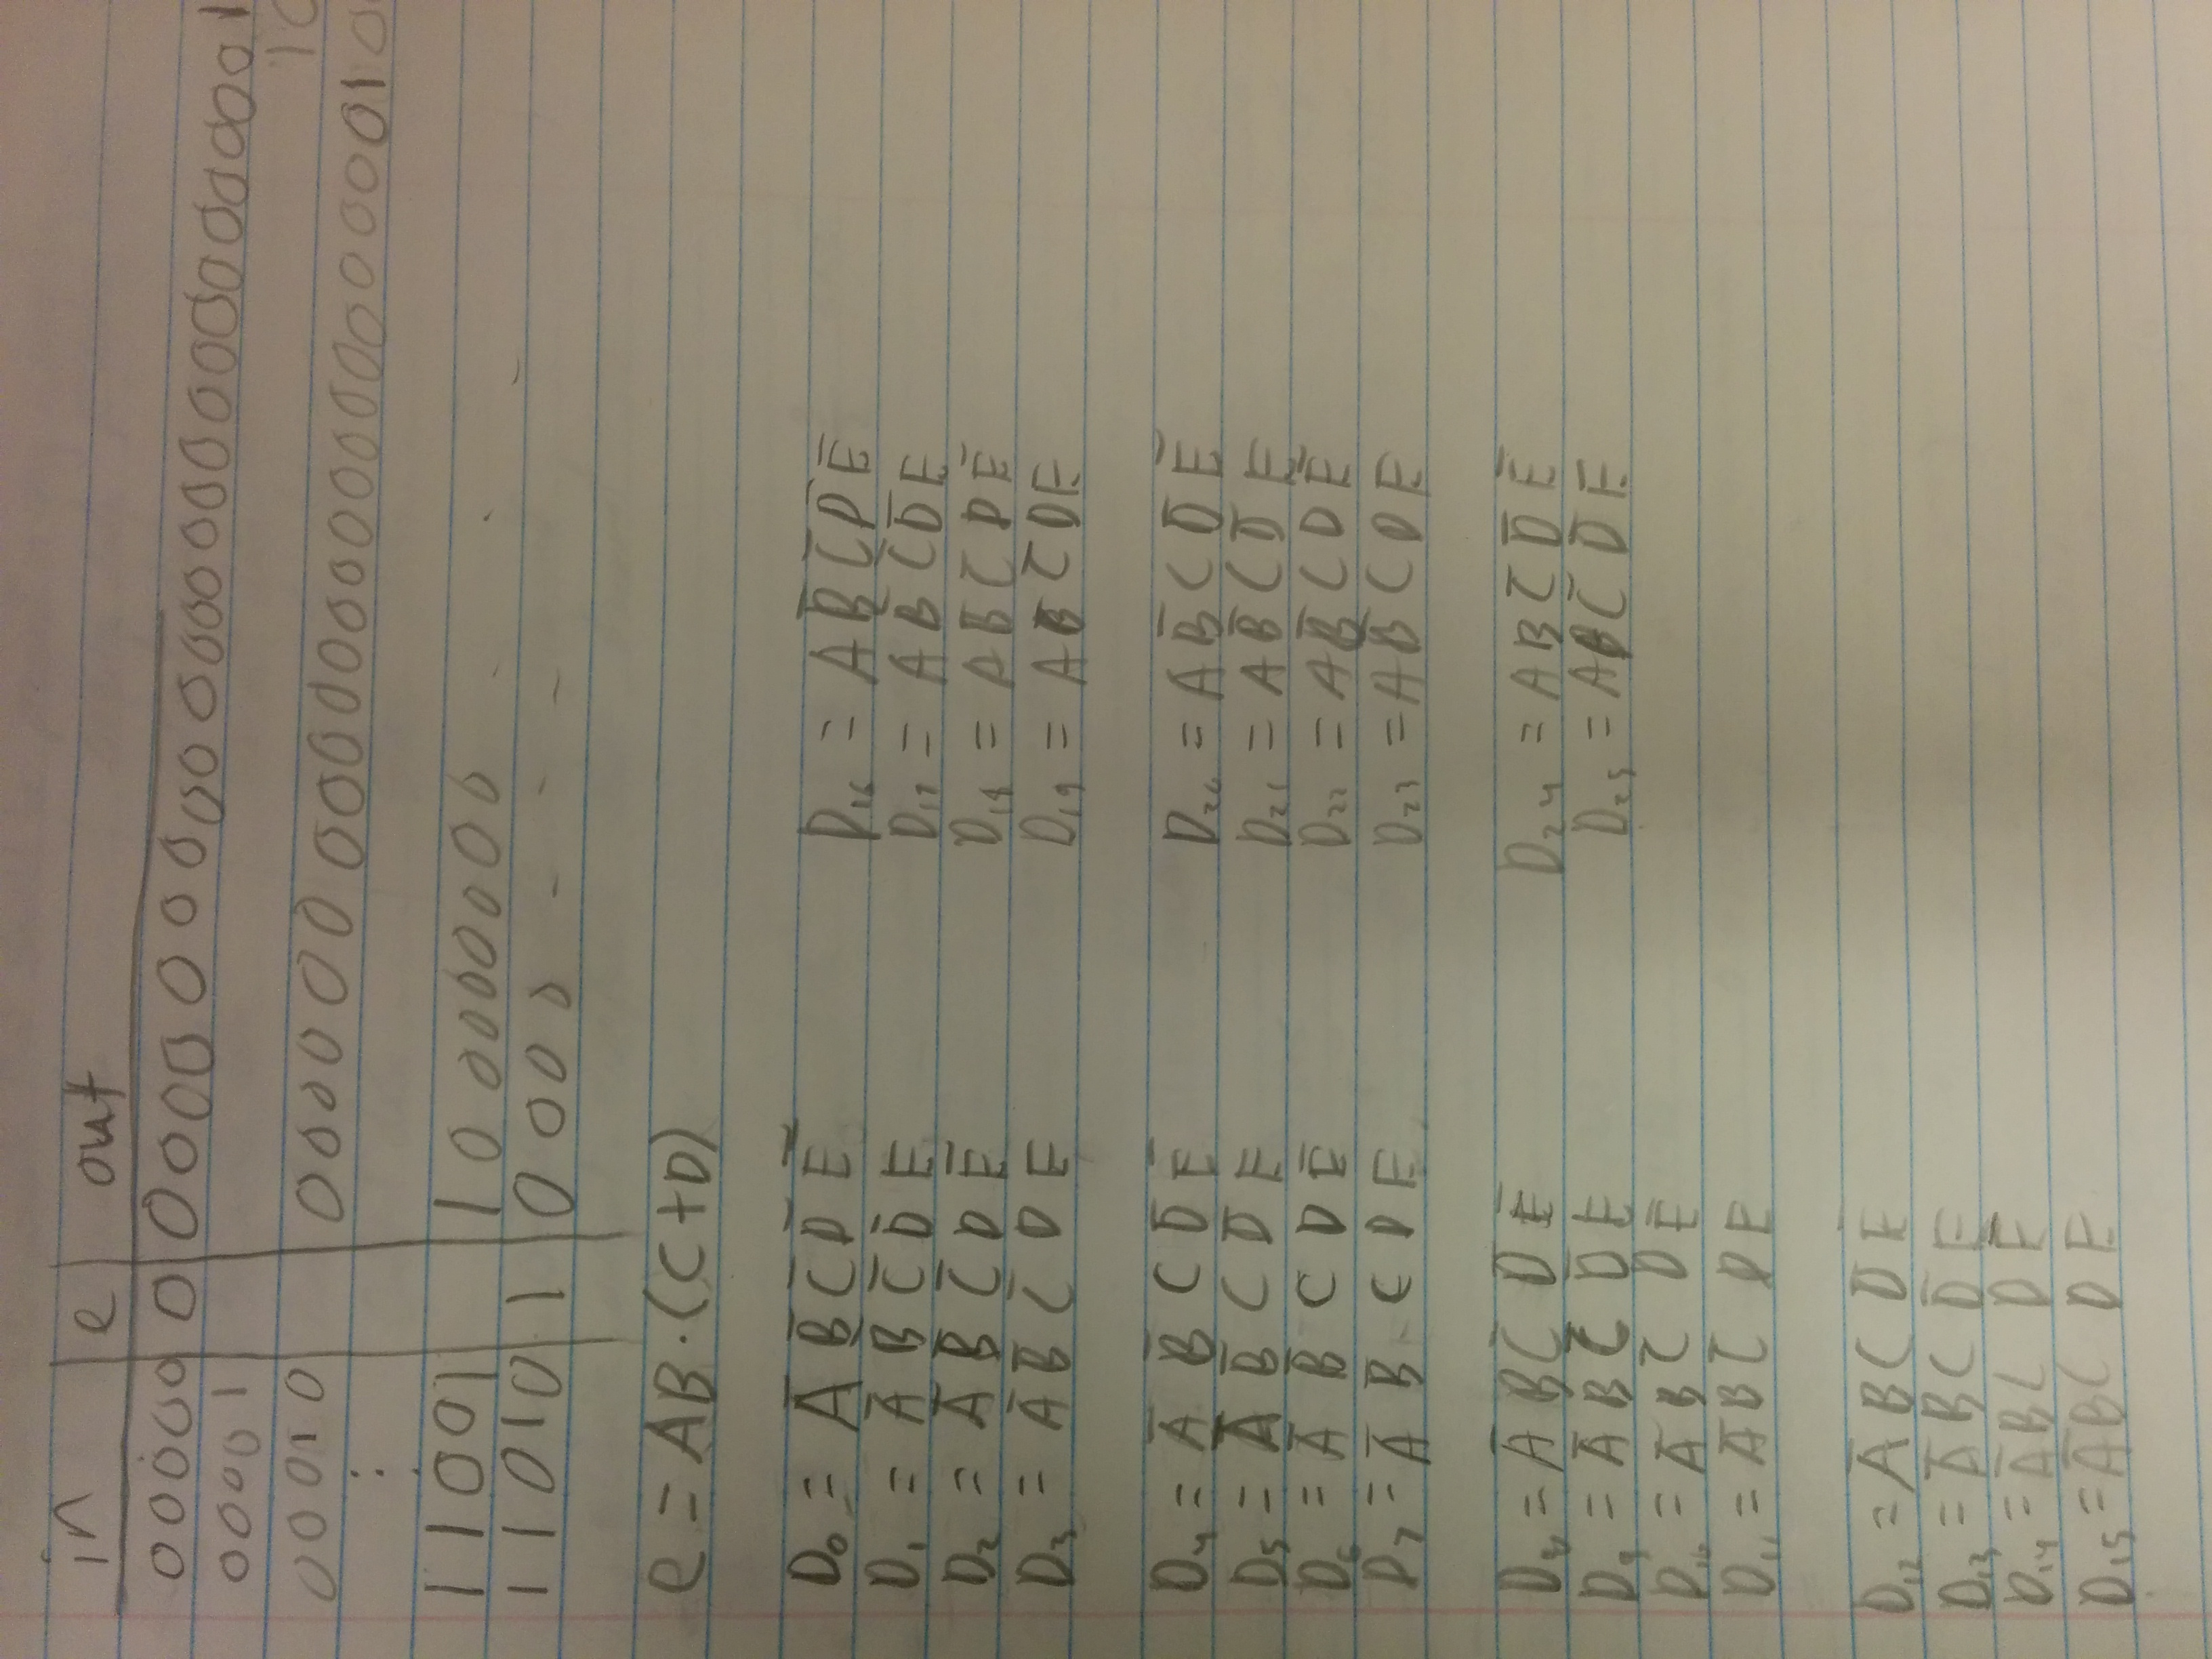 in e out
00000 0 000000000000000000000000001
00001 10
00010 00000000000000000000000010
⋮
11001 100000000 - - -
11010 1 0000 - - - -
e = AB·(C+D)
D₀ = A̅ B̅ C̅ D̅ E̅ D₁₆ = A B̅ C̅ D̅ E̅
D₁ = A̅ B̅ C̅ D̅ E D₁₇ = A B̅ C̅ D̅ E
D₂ = A̅ B̅ C̅ D E̅ D₁₈ = A B̅ C̅ D E̅
D₃ = A̅ B̅ C̅ D E D₁₉ = A B̅ C̅ D E
D₄ = A̅ B̅ C D̅ E̅ D₂₀ = A B̅ C D̅ E̅
D₅ = A̅ B̅ C D̅ E D₂₁ = A B̅ C D̅ E
D₆ = A̅ B̅ C D E̅ D₂₂ = A B̅ C D E̅
D₇ = A̅ B̅ C D E D₂₃ = A B̅ C D E
D₈ = A̅ B C̅ D̅ E̅ D₂₄ = A B C̅ D̅ E̅
D₉ = A̅ B C̅ D̅ E D₂₅ = A B C̅ D̅ E
D₁₀ = A̅ B C̅ D E̅
D₁₁ = A̅ B C̅ D E
D₁₂ = A̅ B C D̅ E̅
D₁₃ = A̅ B C D̅ E
D₁₄ = A̅ B C D E̅
D₁₅ = A̅ B C D E